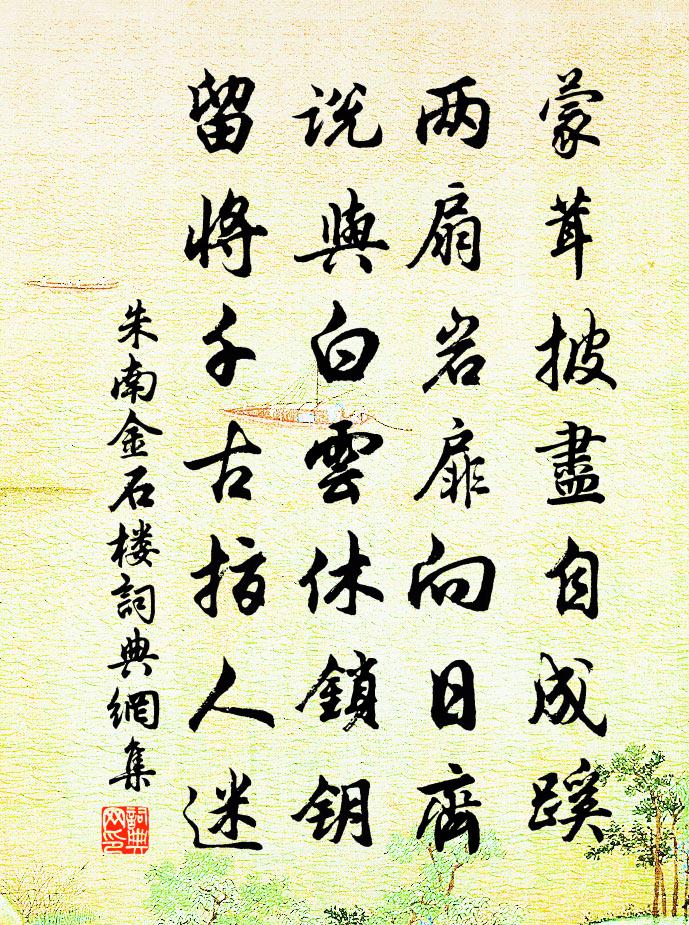 蒙茸披盡自成蹊
两扇岩扉向日齊
説與白雲休鎖钥
留將千古指人迷
朱南金石楼詞典網集
詞典网印